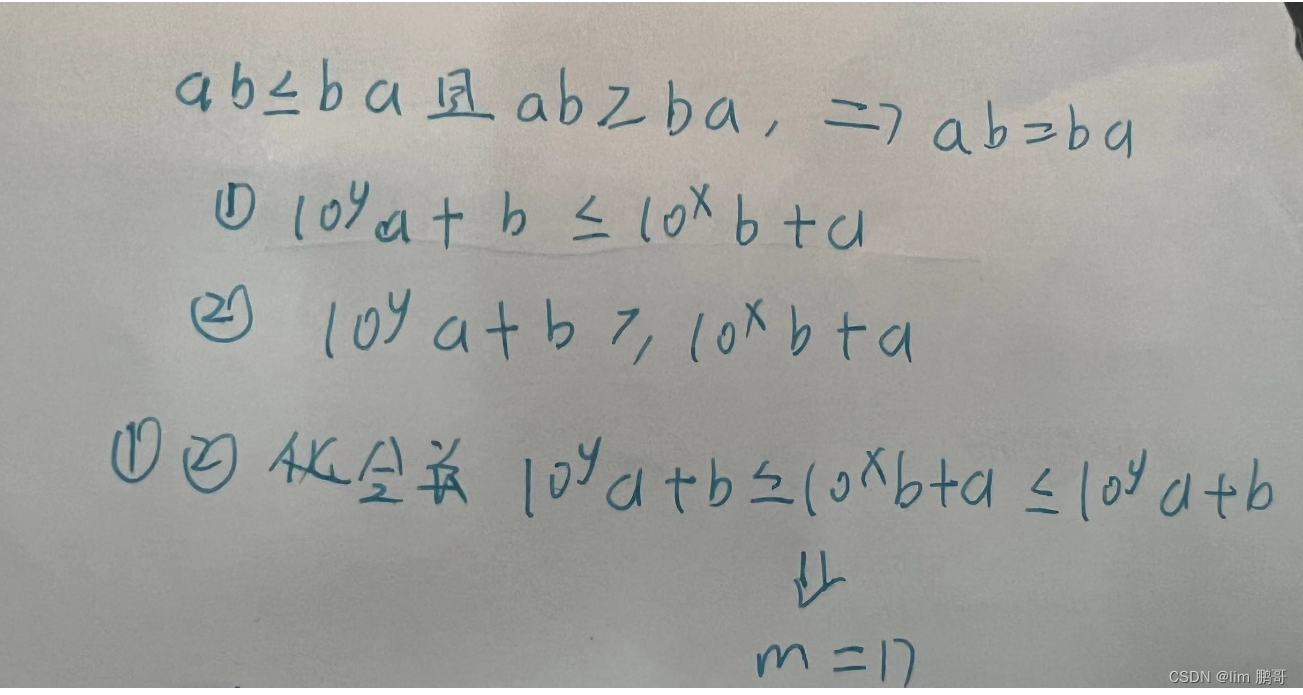 ab≤ba且ab≥ba, => ab=ba
① 10^y a + b ≤ 10^x b + a
② 10^y a + b ≥ 10^x b + a
①② 10^y a + b ≤ 10^x b + a ≤ 10^y a + b
⇓
CSDN @lim 鹏哥